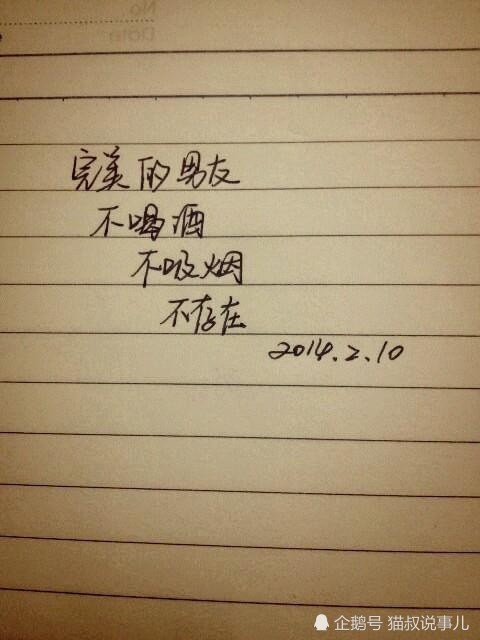 No
Date
完美的男友
不喝酒
不吸烟
不存在
2014.2.10
企鹅号 猫叔说事儿